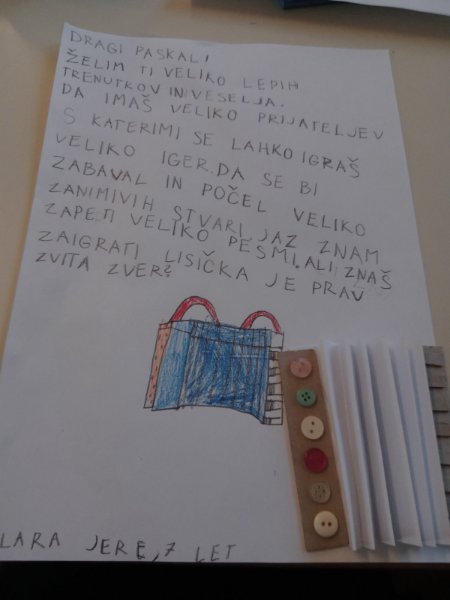 DRAGI PASKAL!
ŽELIM TI VELIKO LEPIH
TRENUTKOV IN VESELJA.
DA IMAŠ VELIKO PRIJATELJEV
S KATERIMI SE LAHKO IGRAŠ
VELIKO IGER. DA SE BI
ZABAVAL IN POČEL VELIKO
ZANIMIVIH STVARI. JAZ ZNAM
ZAPETI VELIKO PESMI. ALI ZNAŠ
ZAIGRATI LISIČKA JE PRAV
ZVITA ZVER?
LARA JERE, 7 LET